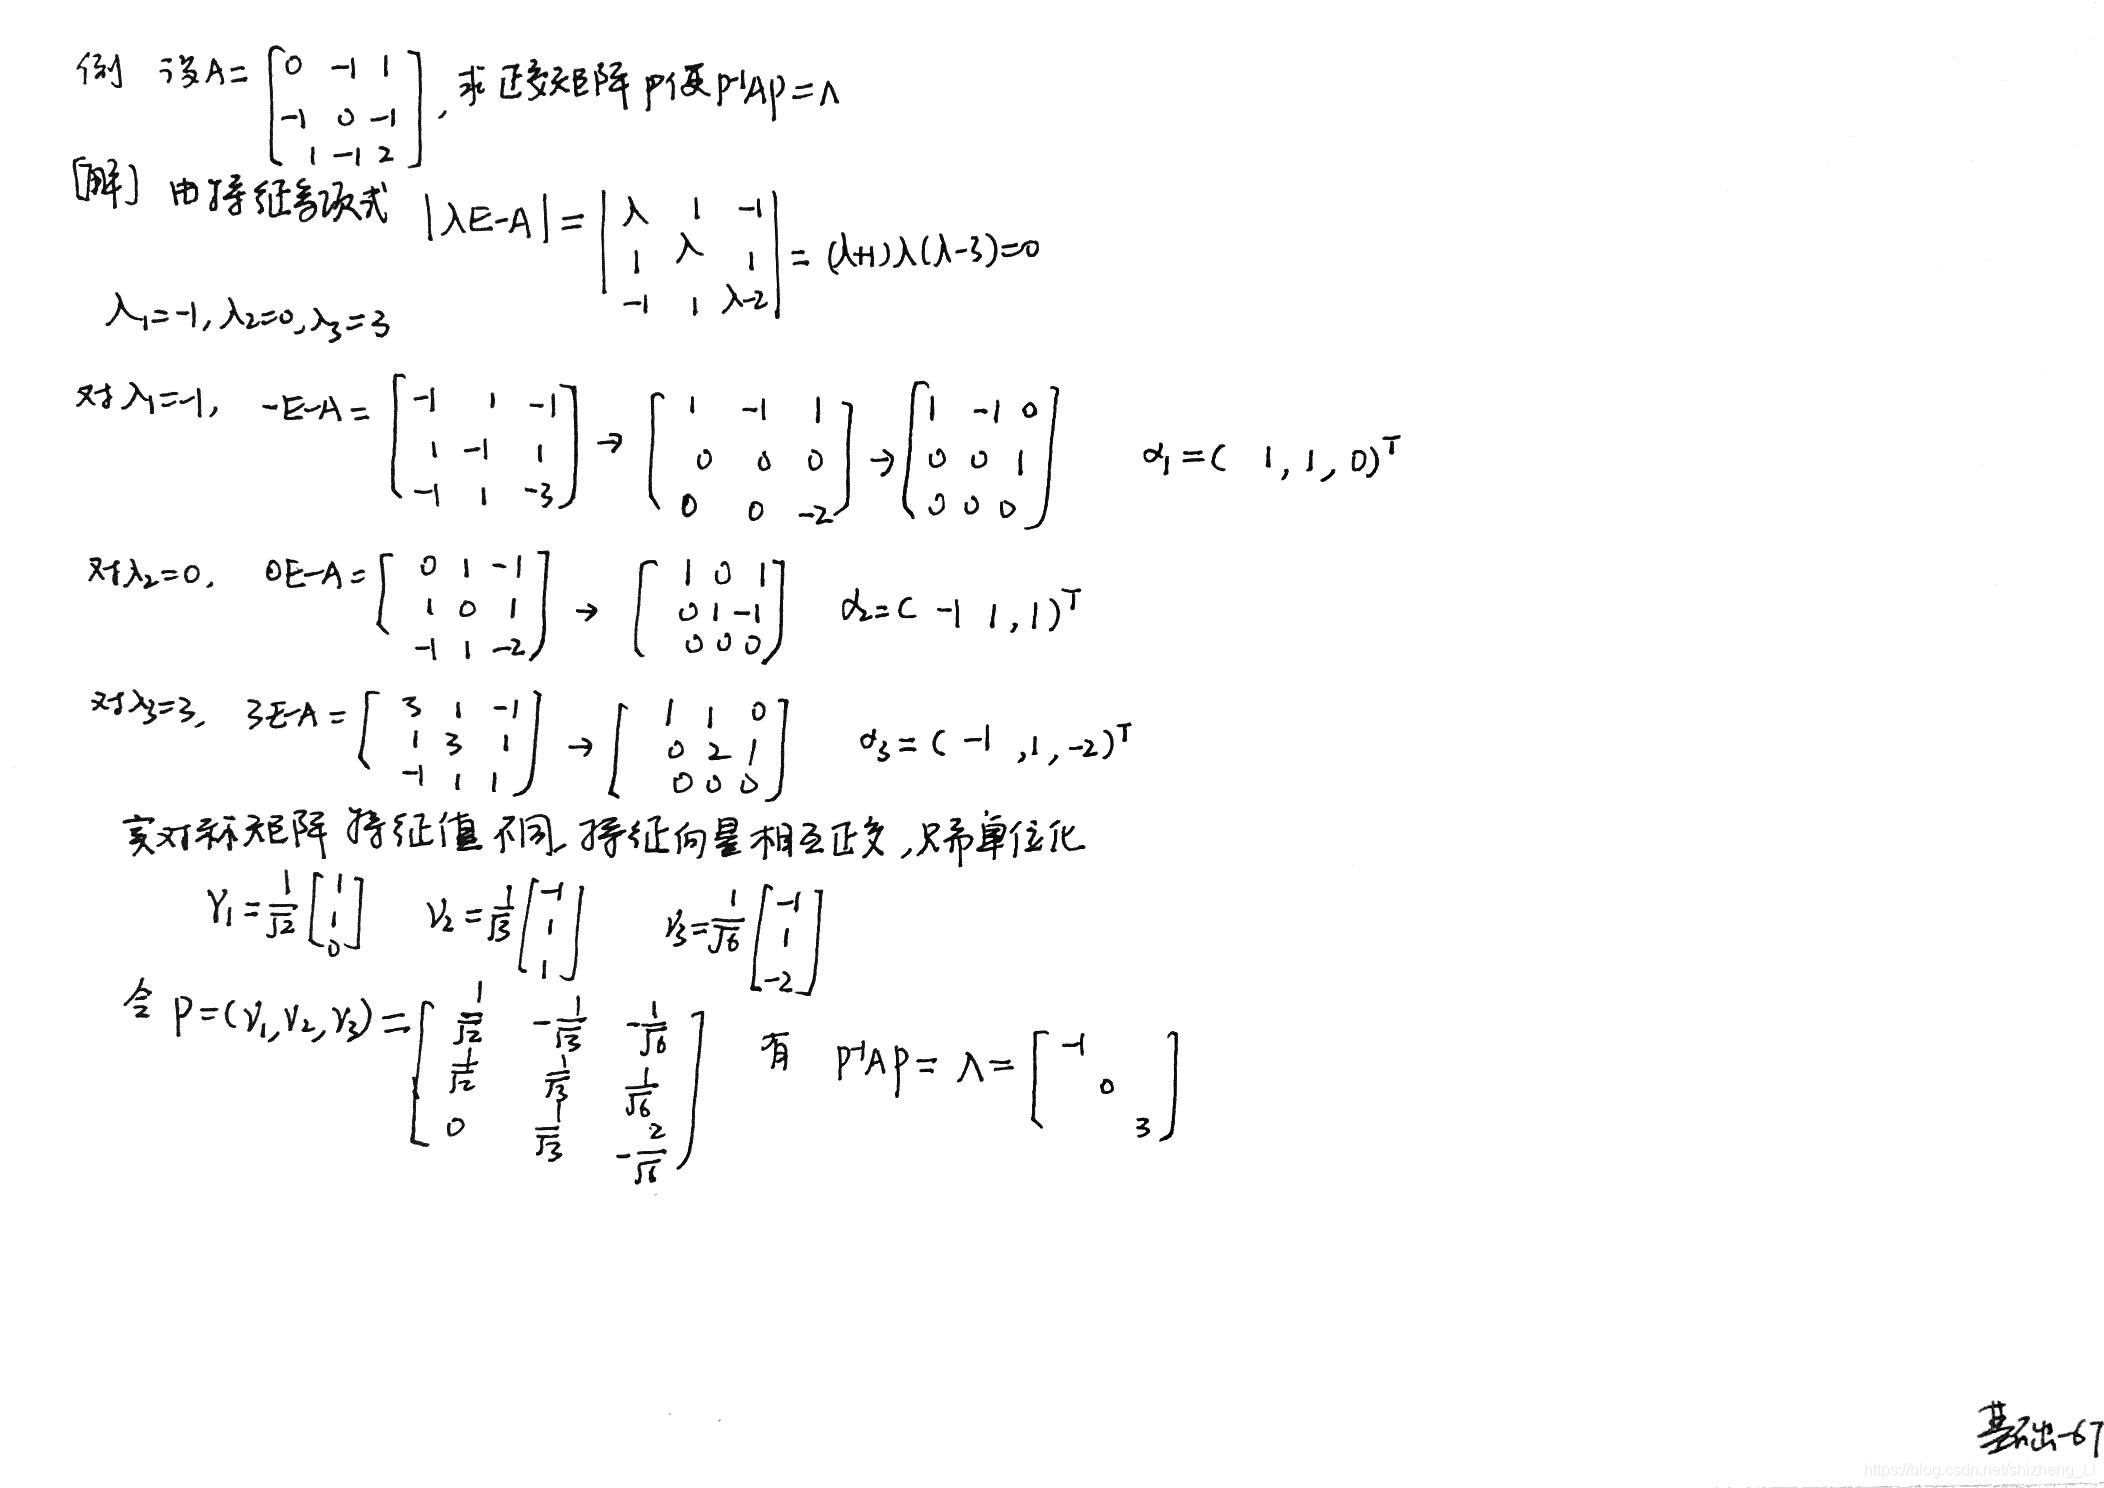 例 设A=[0 -1 1; -1 0 -1; 1 -1 2], 求正交矩阵P使P⁻¹AP=Λ
[解] 由特征多项式 |λE-A|=|λ 1 -1; 1 λ 1; -1 1 λ-2|=(λ+1)λ(λ-3)=0
λ₁=-1, λ₂=0, λ₃=3
对λ₁=-1, -E-A=[-1 1 -1; 1 -1 1; -1 1 -3]→[1 -1 1; 0 0 0; 0 0 -2]→[1 -1 0; 0 0 1; 0 0 0] α₁=( 1, 1, 0)ᵀ
对λ₂=0, 0E-A=[0 1 -1; 1 0 1; -1 1 -2]→[1 0 1; 0 1 -1; 0 0 0] α₂=( -1 1, 1)ᵀ
对λ₃=3, 3E-A=[3 1 -1; 1 3 1; -1 1 1]→[1 1 0; 0 2 1; 0 0 0] α₃=( -1 ,1, -2)ᵀ
实对称矩阵 特征值不同, 特征向量相互正交, 只需单位化
γ₁=1/√2[1; 1; 0] γ₂=1/√3[-1; 1; 1] γ₃=1/√6[-1; 1; -2]
令 P=(γ₁,γ₂,γ₃)=[1/√2 -1/√3 -1/√6; 1/√2 1/√3 1/√6; 0 1/√3 -2/√6] 有 P⁻¹AP=λ=[-1 0 3]
基础-67
https://blog.csdn.net/shizheng_Li